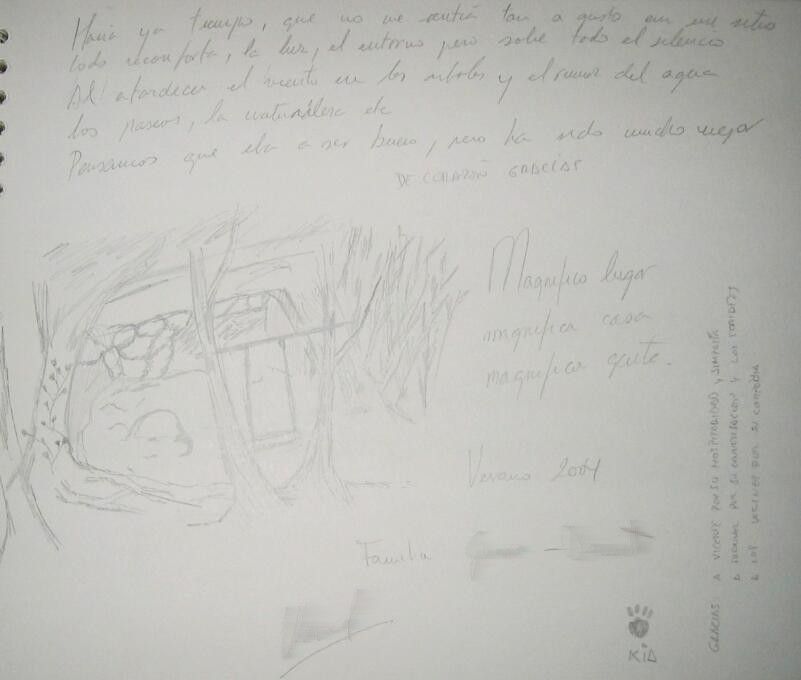 Hacía ya tiempo, que no me sentía tan a gusto en un sitio
todo reconforta, la luz, el entorno pero sobre todo el silencio
Al atardecer el viento en los arboles y el rumor del agua
los paseos, la naturaleza etc
Pensamos que iba a ser bueno, pero ha sido mucho mejor
DE CORAZÓN GRACIAS
Magnifico lugar
magnifica casa
magnifica gente.
Verano 2004
Familia
KID
GRACIAS: A VICENTE POR SU HOSPITALIDAD Y SIMPATÍA
A POR SU CONVERSACION Y LOS
A LOS VECINOS POR SU